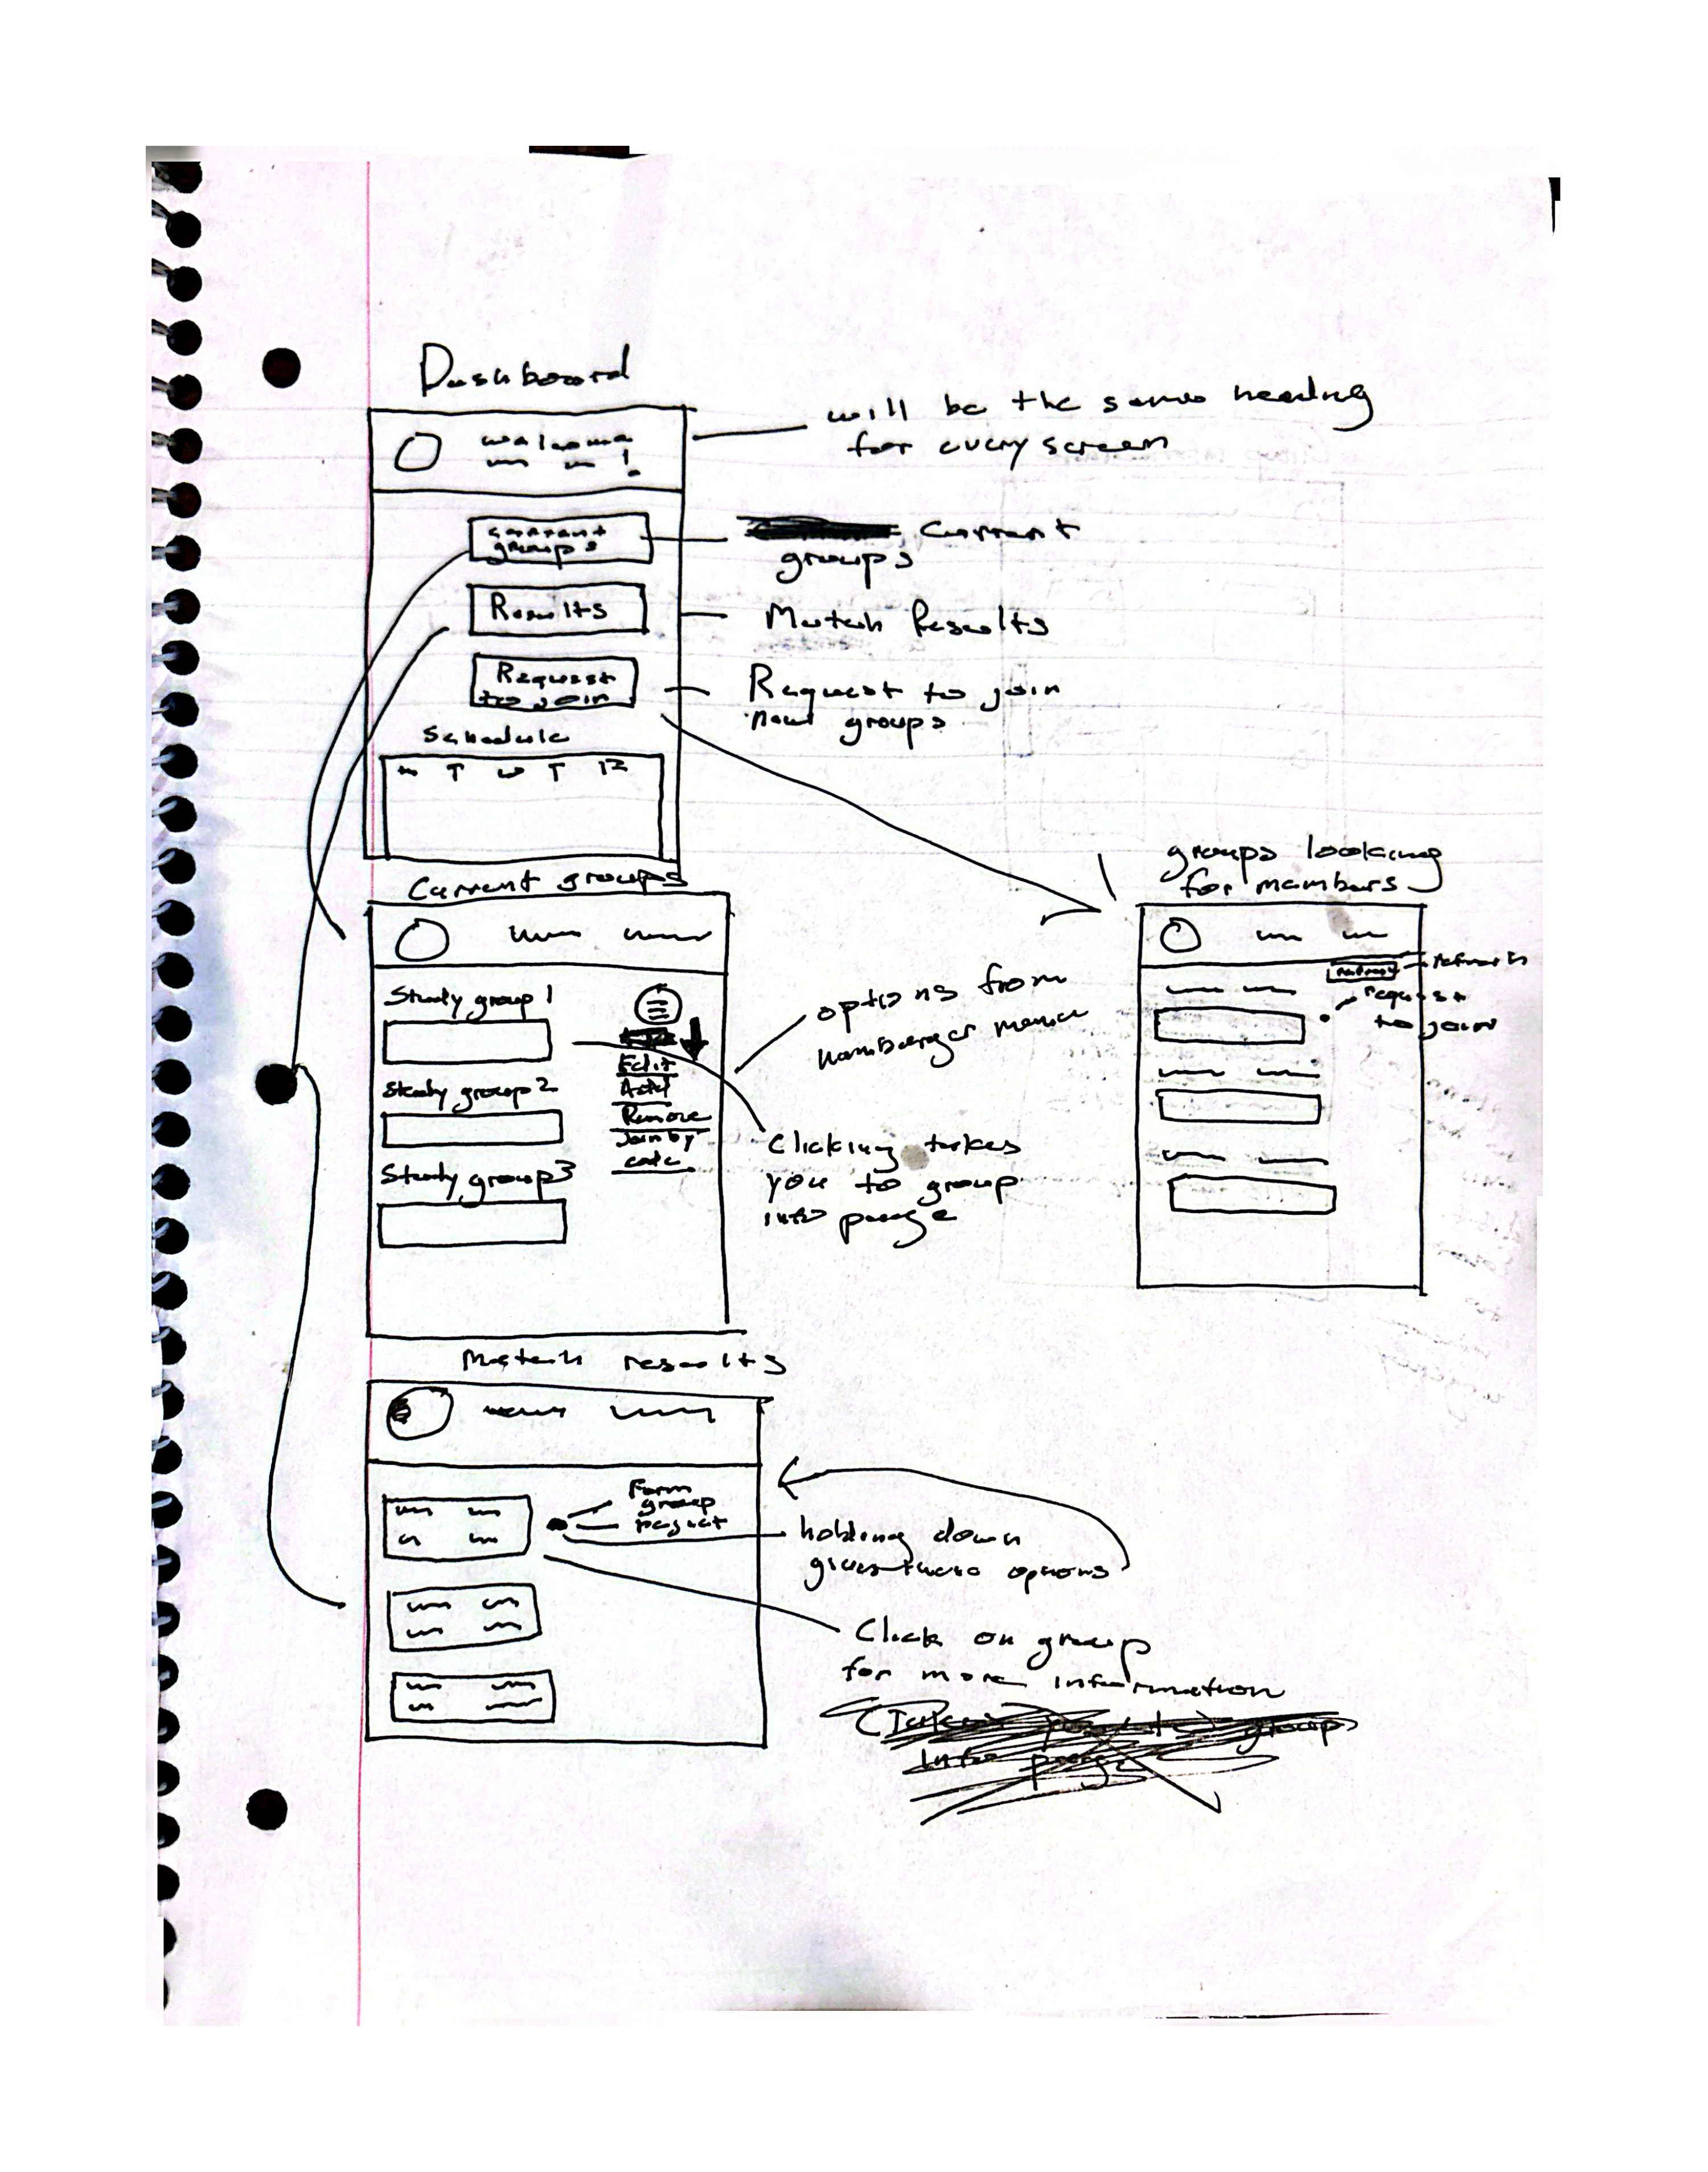 Dashboard
welcome
!
will be the same heading
for every screen
current
groups
Current
groups
Results
Match Results
Request
to join
Request to join
new groups
Schedule
M T W T F
Current groups
groups looking
for members
refresh
refresh
request
to join
Study group 1
Edit
Add
Remove
Join by
code
options from
hamburger menu
Study group 2
Study group 3
Clicking takes
you to group
info page
Match results
Form
group
holding down
gives these options
Click on group
for more information
group
info page